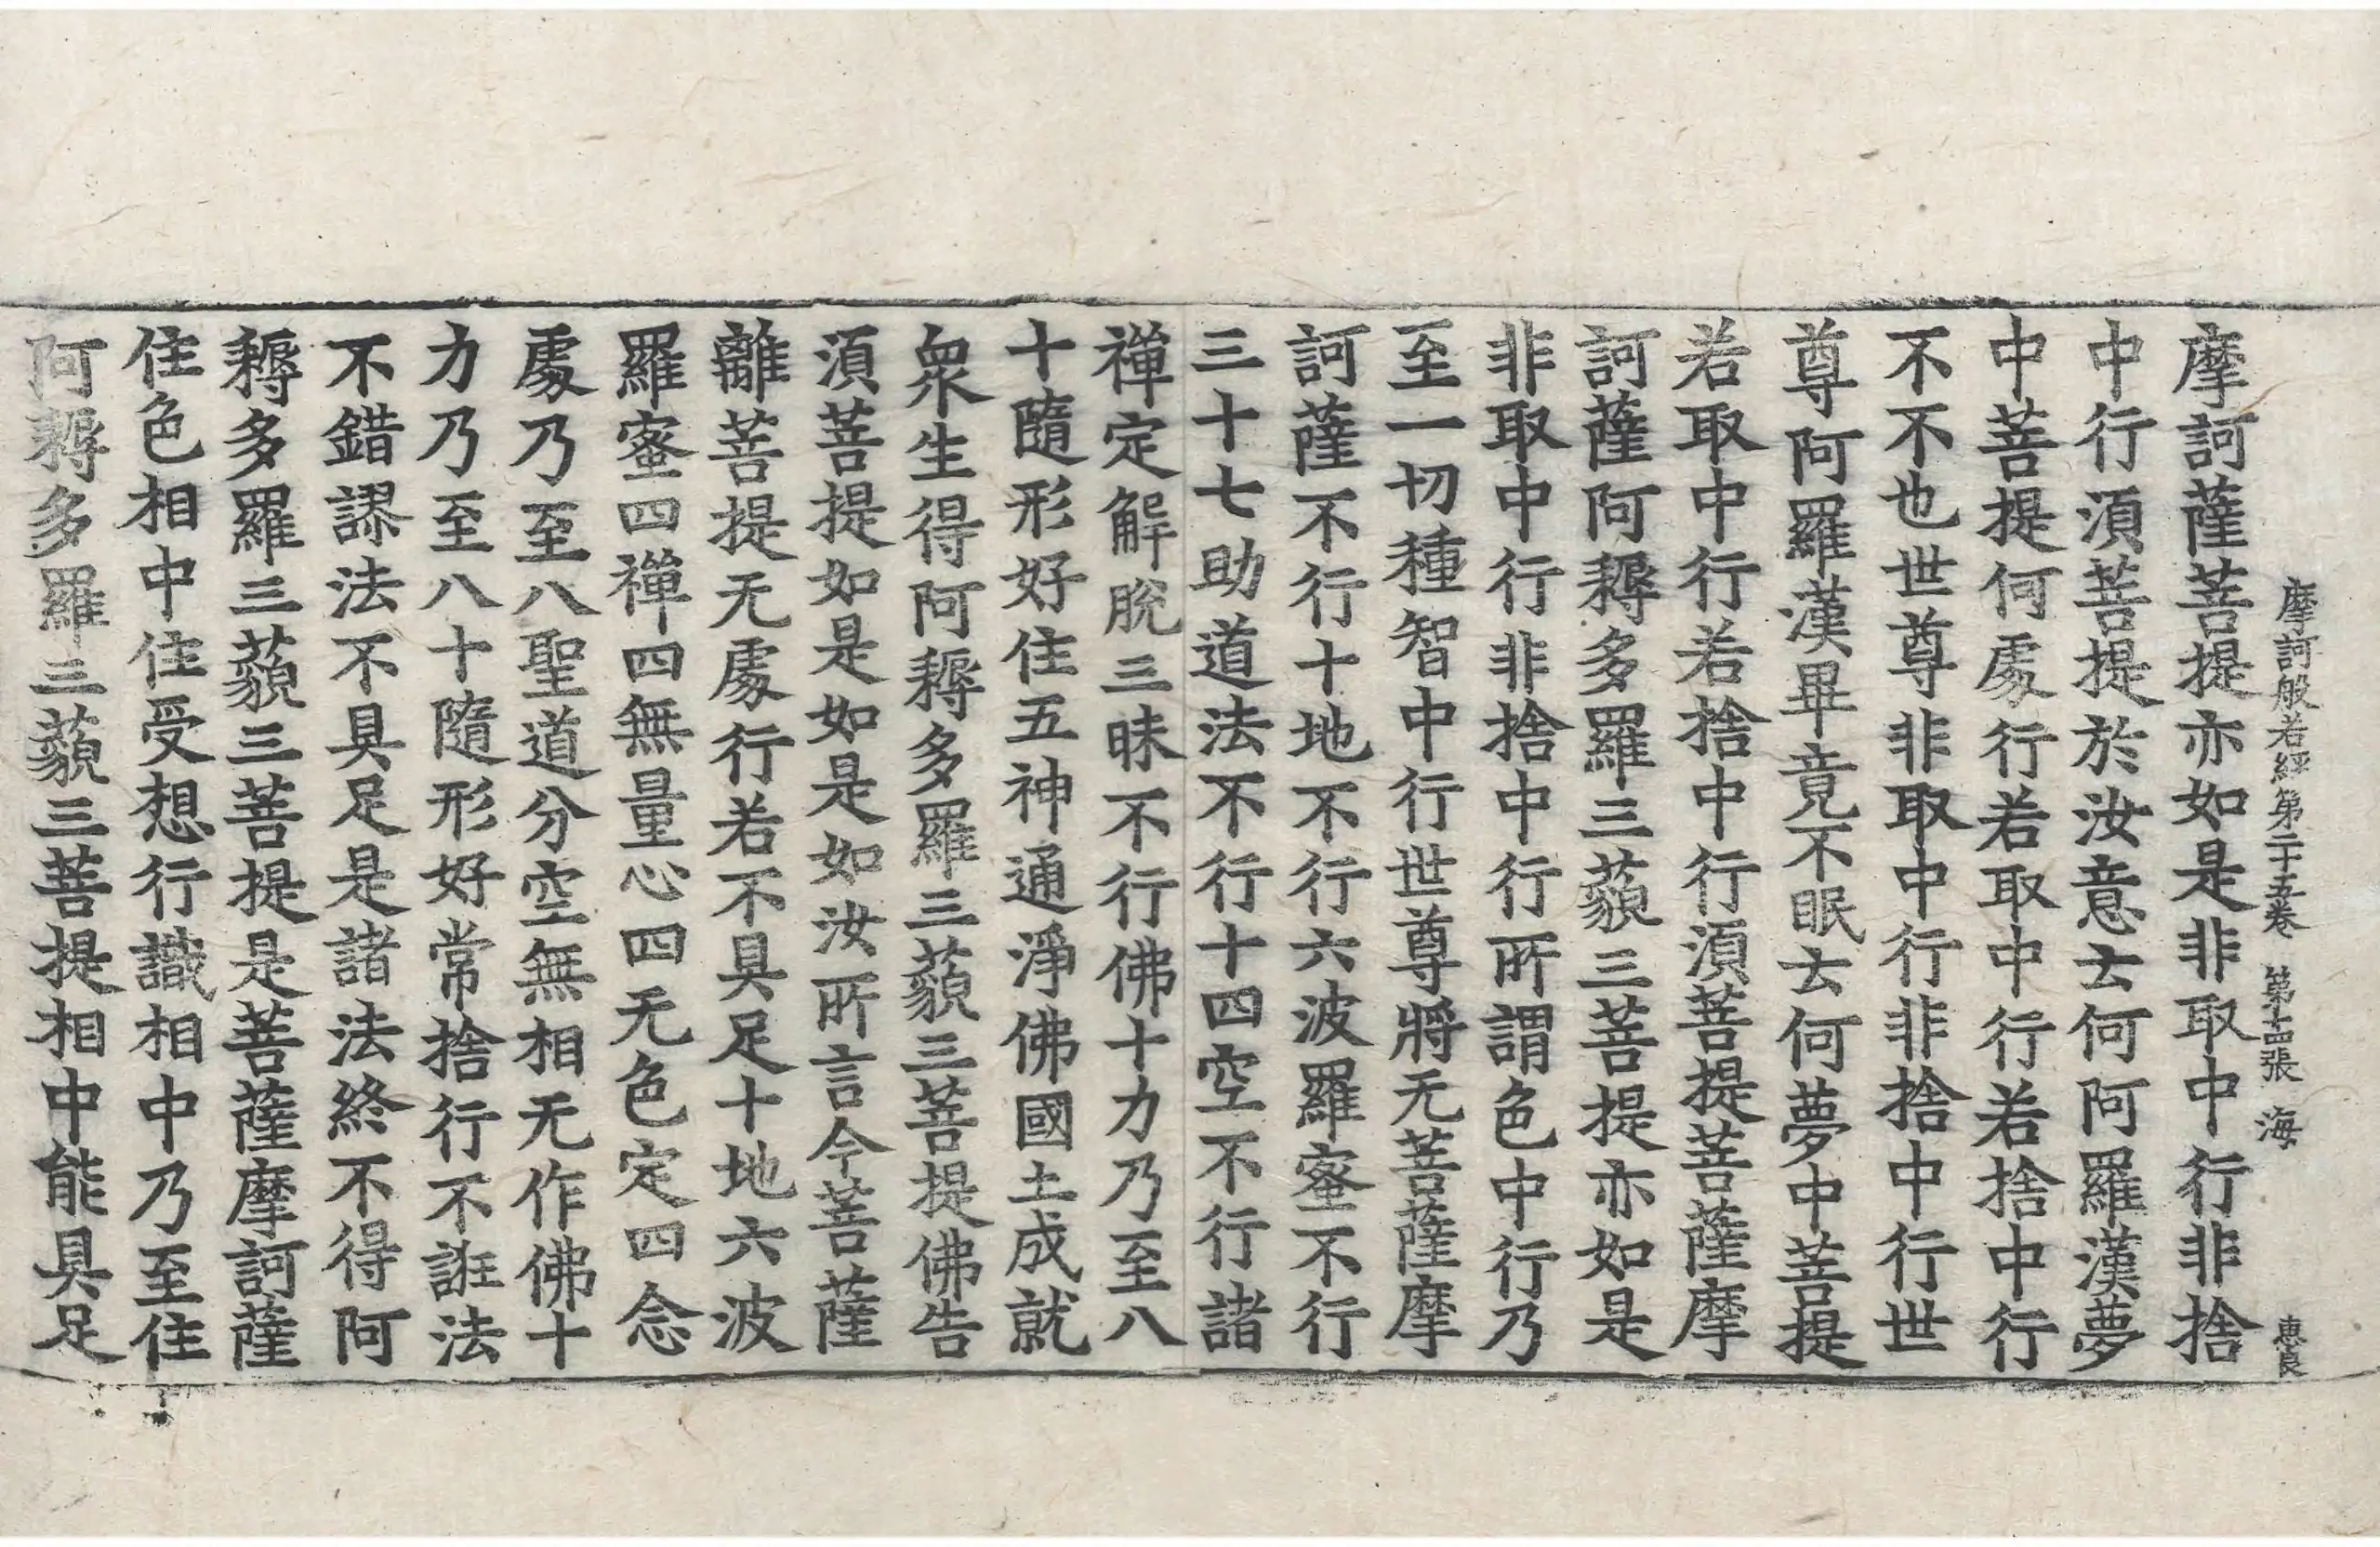 摩訶般若經第二十五卷 第十四張 海 惠良
摩訶薩菩提亦如是非取中行非捨
中行須菩提於汝意云何阿羅漢夢
中菩提何處行若取中行若捨中行
不不也世尊非取中行非捨中行世
尊阿羅漢畢竟不眠云何夢中菩提
若取中行若捨中行須菩提菩薩摩
訶薩阿耨多羅三藐三菩提亦如是
非取中行非捨中行所謂色中行乃
至一切種智中行世尊將无菩薩摩
訶薩不行十地不行六波羅蜜不行
三十七助道法不行十四空不行諸
禪定解脫三昧不行佛十力乃至八
十隨形好住五神通淨佛國土成就
衆生得阿耨多羅三藐三菩提佛告
須菩提如是如是如汝所言今菩薩
離菩提无處行若不具足十地六波
羅蜜四禪四無量心四无色定四念
處乃至八聖道分空無相无作佛十
力乃至八十隨形好常捨行不誑法
不錯謬法不具足是諸法終不得阿
耨多羅三藐三菩提是菩薩摩訶薩
住色相中住受想行識相中乃至住
阿耨多羅三藐三菩提相中能具足